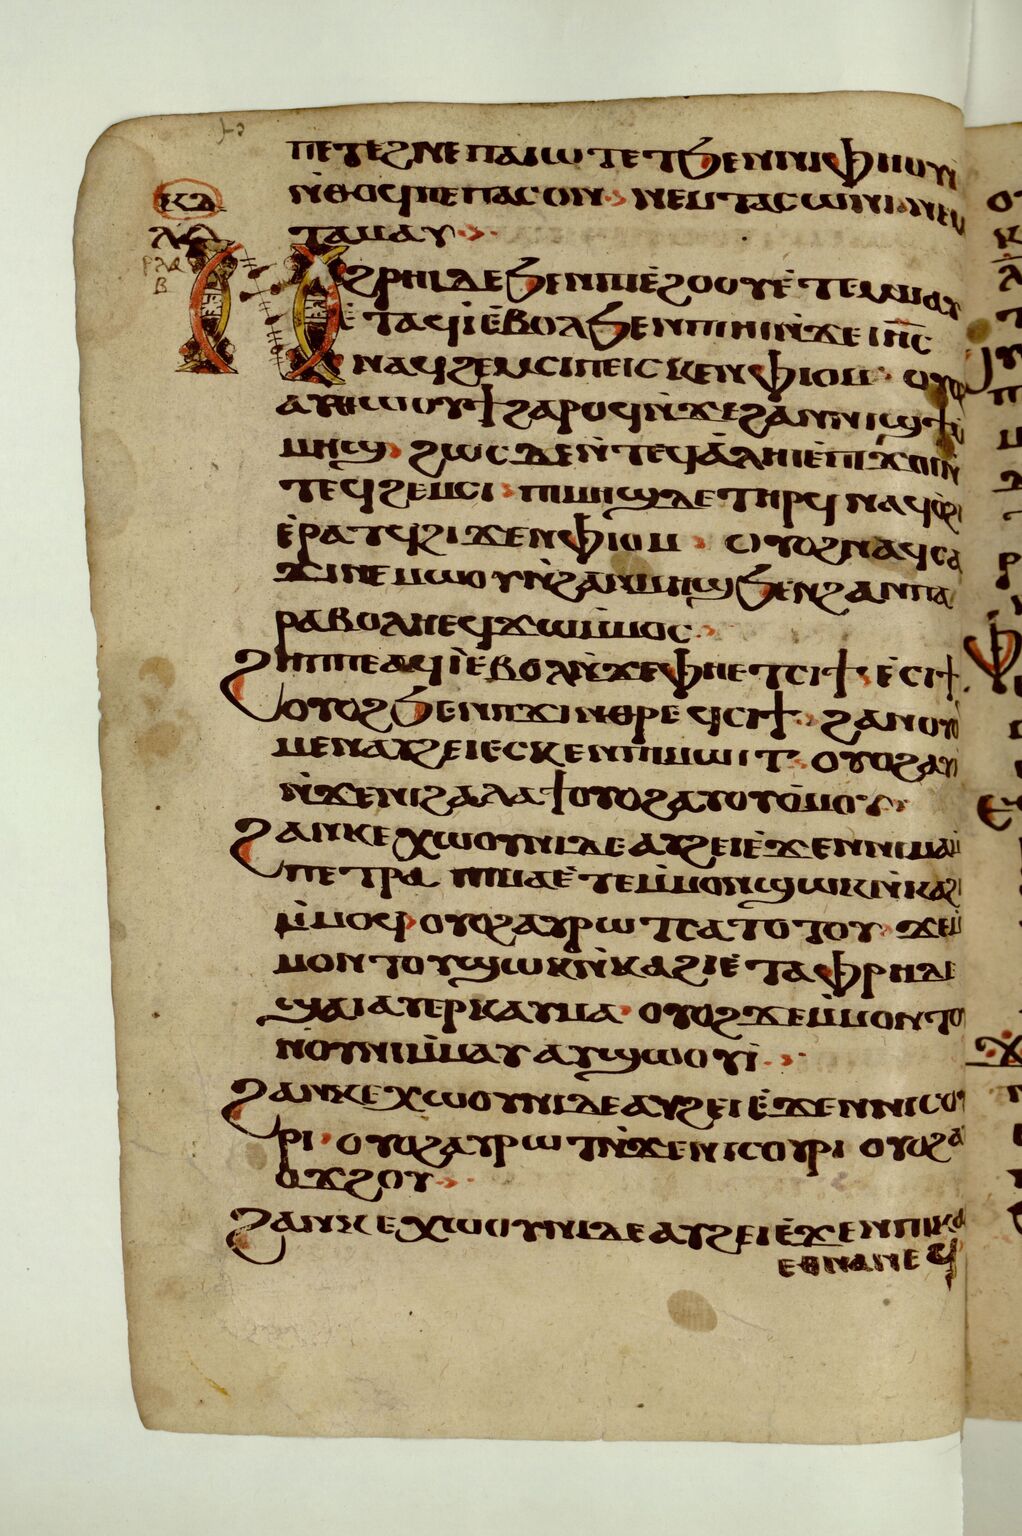 ⲡⲉⲧⲉϩⲛⲉ ⲡⲁⲓⲱⲧ ⲉⲧϧⲉⲛ ⲛⲓⲫⲏⲟⲩⲓ
ⲛ̀ⲑⲟϥ ⲡⲉ ⲡⲁⲥⲟⲛ ⲛⲉⲙ ⲧⲁⲥⲱⲛⲓ ⲛⲉⲙ
ⲧⲁⲙⲁⲩ
ⲕⲇ
ⲛϩⲣⲏⲓ ⲇⲉ ϧⲉⲛ ⲡⲓⲉ̀ϩⲟⲟⲩ ⲉ̀ⲧⲉⲙⲙⲁⲩ
ⲉ̀ⲧⲁϥⲓ̀ ⲉ̀ⲃⲟⲗ ϧⲉⲛ ⲡⲓⲏⲓ ⲛ̀ϫⲉ ⲓⲏⲥ
ⲛⲁϥϩⲉⲙⲥⲓ ⲡⲉ ⲓⲥⲕⲉⲛ ⲫⲓⲟⲙ ⲟⲩⲟϩ
ⲁⲩⲑⲱⲟⲩϯ ϩⲁⲣⲟϥ ⲛ̀ϫⲉ ϩⲁⲛⲛⲓϣϯ ⲙ̀
ⲙⲏϣ ϩⲱⲥⲇⲉ ⲛ̀ⲧⲉϥⲁ̀ⲗⲏⲓ ⲉ̀ⲡⲓϫⲟⲓ ⲛ̀
ⲧⲉϥϩⲉⲙⲥⲓ ⲡⲓⲙⲏϣ ⲇⲉ ⲧⲏⲣϥ ⲛⲁϥⲟ̀ϩⲓ
ⲉ̀ⲣⲁⲧϥ ϩⲓϫⲉⲛ ⲫⲓⲟⲙ ⲟⲩⲟϩ ⲛⲁϥⲥⲁ
ϫⲓ ⲛⲉⲙⲱⲟⲩ ⲛ̀ϩⲁⲛⲙⲏϣ ϧⲉⲛ ϩⲁⲛⲡⲁ
ⲣⲁⲃⲟⲗⲏ ⲉϥϫⲱ ⲙ̀ⲙⲟⲥ
ϩⲏⲡⲡⲉ ⲁϥⲓ̀ ⲉ̀ⲃⲟⲗ ⲛ̀ϫⲉ ⲫⲏ ⲉⲧⲥⲓϯ ⲉ̀ⲥⲓϯ
ⲟⲩⲟϩ ϧⲉⲛ ⲡϫⲓⲛⲑⲣⲉϥⲥⲓϯ ϩⲁⲛⲟⲩⲟⲛ
ⲙⲉⲛ ⲁⲩϩⲉⲓ ⲉⲥⲕⲉⲛ ⲡⲓⲙⲱⲓⲧ ⲟⲩⲟϩ ⲁⲩⲓ̀
ⲛ̀ϫⲉ ⲛⲓϩⲁⲗⲁϯ ⲟⲩⲟϩ ⲁⲩⲟⲩⲟⲙⲟⲩ
ϩⲁⲛⲕⲉⲭⲱⲟⲩⲛⲓ ⲇⲉ ⲁⲩϩⲉⲓ ⲉ̀ϫⲉⲛ ⲛⲓⲙⲁ ⲙ̀
ⲡⲉⲧⲣⲁ ⲡⲓⲙⲁ ⲉ̀ⲧⲉ ⲙ̀ⲙⲟⲛ ϣⲱⲕ ⲛ̀ⲕⲁϩⲓ
ⲙ̀ⲙⲟϥ ⲟⲩⲟϩ ⲁⲩⲣⲱⲧ ⲥⲁⲧⲟⲧⲟⲩ ϫⲉ ⲙ̀
ⲙⲟⲛⲧⲟⲩ ϣⲱⲕ ⲛ̀ⲕⲁϩⲓ ⲉ̀ⲧⲁ ⲫⲣⲏ ⲇⲉ
ϣⲁⲓ ⲁⲩⲉⲣⲕⲁⲩⲙⲁ ⲟⲩⲟϩ ϫⲉ ⲙ̀ⲙⲟⲛⲧⲟⲩ
ⲛⲟⲩⲛⲓ ⲙ̀ⲙⲁⲩ ⲁⲩϣⲱⲟⲩⲓ̀
ϩⲁⲛⲕⲉⲭⲱⲟⲩⲛⲓ ⲇⲉ ⲁⲩϩⲉⲓ ⲉ̀ϫⲉⲛ ⲛⲓⲥⲟⲩ
ⲣⲓ ⲟⲩⲟϩ ⲁⲩⲣⲱⲧ ⲛ̀ϫⲉ ⲛⲓⲥⲟⲩⲣⲓ ⲟⲩⲟϩ ⲁ
ⲟϫϩⲟⲩ
ϩⲁⲛⲕⲉⲭⲱⲟⲩⲛⲓ ⲇⲉ ⲁⲩϩⲉⲓ ⲉ̀ϫⲉⲛ ⲡⲓⲕⲁ
ⲉⲑⲛⲁⲛⲉϥ